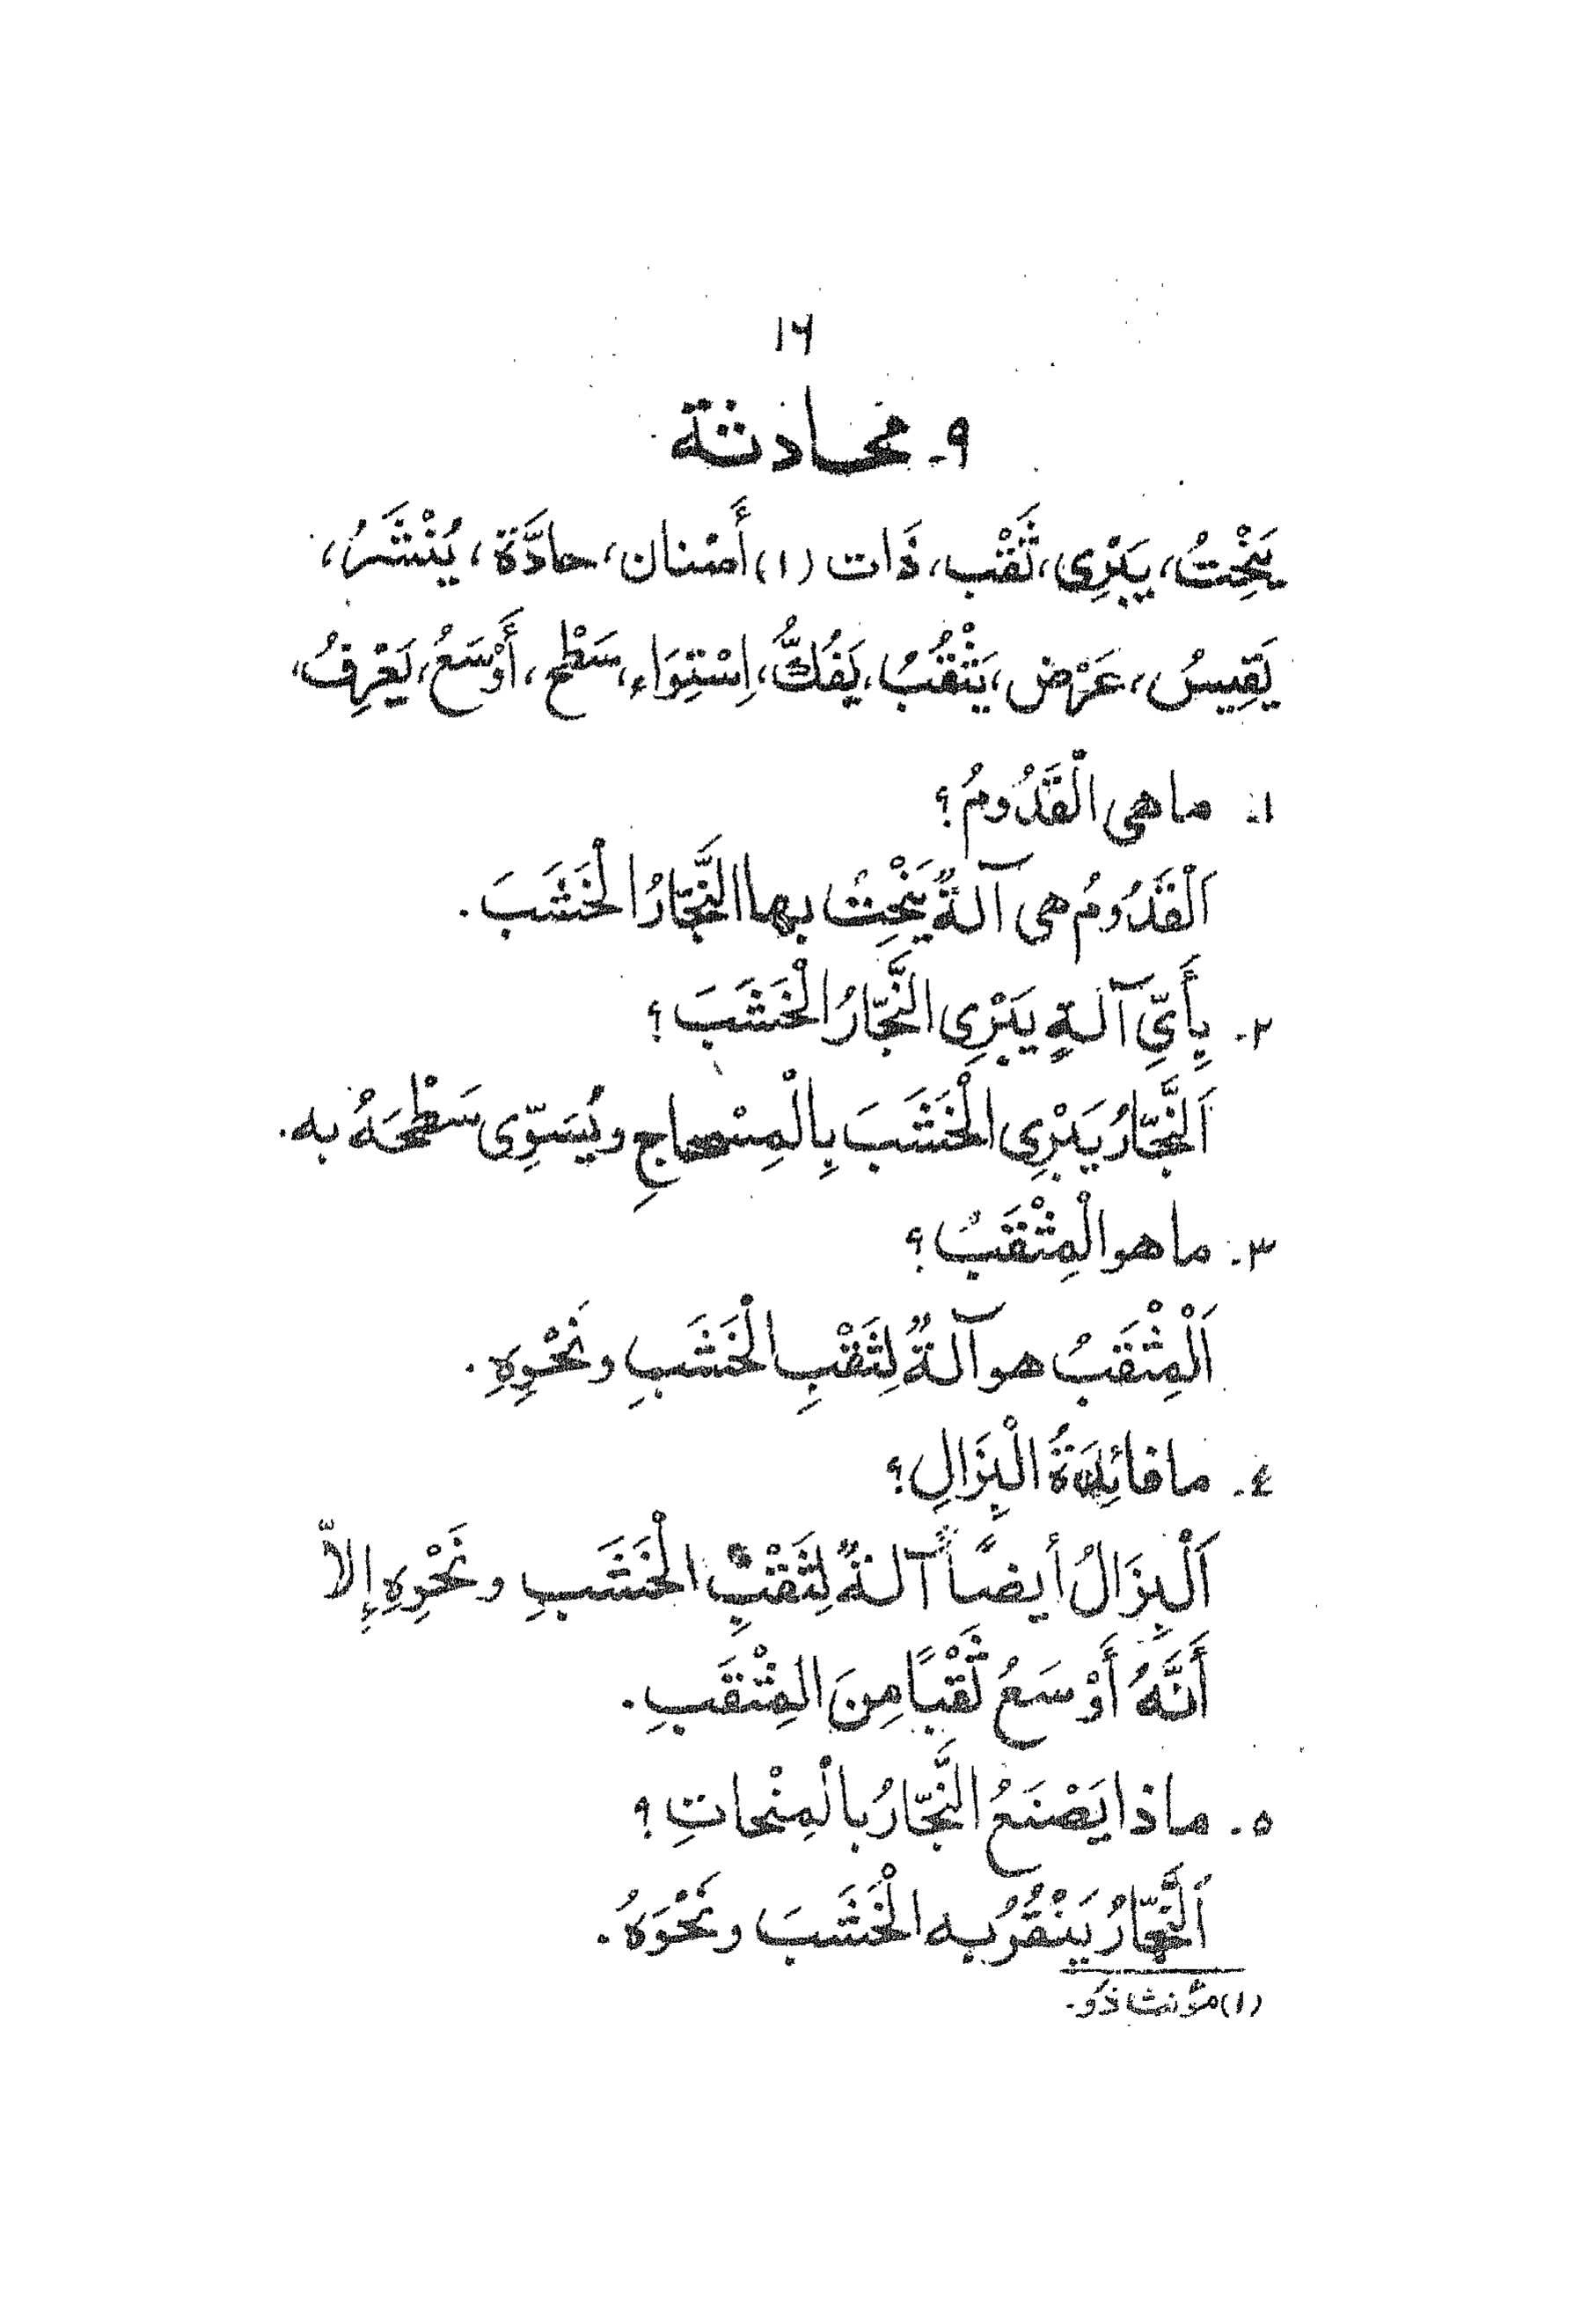 ١٦
٩ـ محادثة
يَنْحِتُ، يَبْرِى، ثَقْب، ذَات (١) أَسْنان، حادَّة، يُنْشَرُ،
يَقِيسُ، عَرْض، يَثْقُبُ، يَفُكُّ، اِسْتِوَاء، سَطْح، أَوْسَعُ، يَعْرِفُ،
١ـ ماهى الْقَدُومُ؟
اَلْقَدُومُ هى آلةٌ يَنْحِتُ بها النَّجَّارُ الْخَشَبَ.
٢ـ بِأَيِّ آلةٍ يَبْرِى النَّجَّارُ الْخَشَبَ؟
اَلنَّجَّارُ يَبْرِى الْخَشَبَ بِالْمِسْحاجِ ويُسَوِّى سَطْحَهُ به.
٣ـ ما هو الْمِثْقَبُ؟
اَلْمِثْقَبُ هو آلةٌ لِثَقْبِ الْخَشَبِ ونَحْوِهِ.
٤ـ ما فائِدَةُ الْبِزَالِ؟
اَلْبِزَالُ أيضًا آلةٌ لِثَقْبِ الْخَشَبِ ونَحْوِهِ إِلاّ
أَنَّهُ أَوْسَعُ ثَقْبًا مِنَ الْمِثْقَبِ.
٥ـ ماذا يَصْنَعُ النَّجَّارُ بالْمِنْحاتِ؟
اَلنَّجَّارُ يَنْقُرُ به الْخَشَبَ ونَحْوَهُ.
(١) مؤنث ذو.